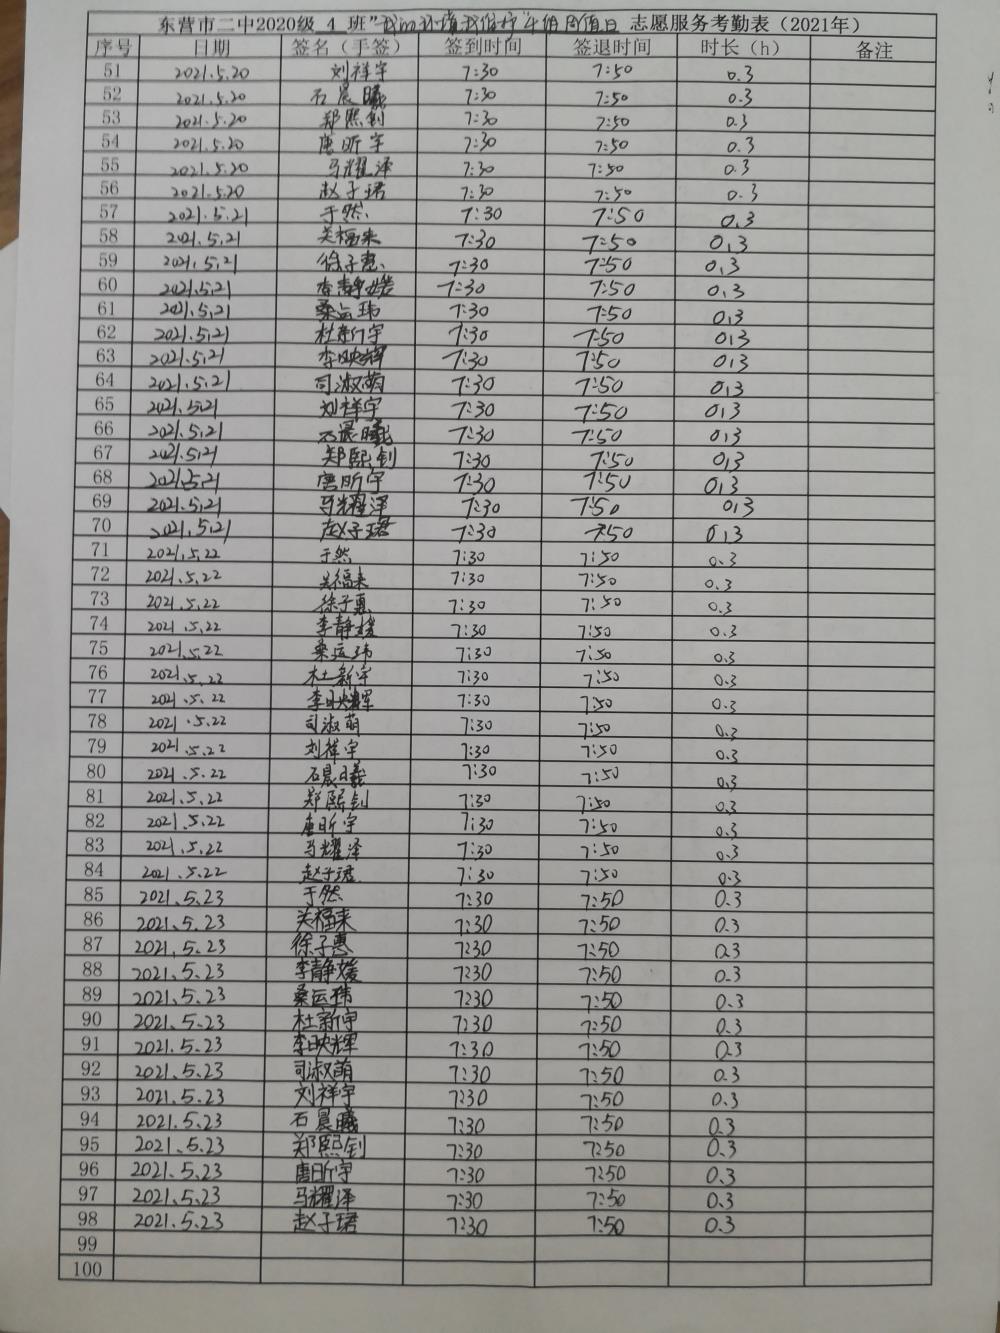 东营市二中2020级 4 班"我的环境我维护" 志愿服务考勤表（2021年）
序号 日期 签名（手签） 签到时间 签退时间 时长（h） 备注
51 2021.5.20 刘祥宇 7:30 7:50 0.3
52 2021.5.20 石晨曦 7:30 7:50 0.3
53 2021.5.20 郑熙钊 7:30 7:50 0.3
54 2021.5.20 唐昕宇 7:30 7:50 0.3
55 2021.5.20 马耀泽 7:30 7:50 0.3
56 2021.5.20 赵子珺 7:30 7:50 0.3
57 2021.5.21 于然 7:30 7:50 0.3
58 2021.5.21 关福来 7:30 7:50 0.3
59 2021.5.21 徐子惠 7:30 7:50 0.3
60 2021.5.21 李静媛 7:30 7:50 0.3
61 2021.5.21 桑运玮 7:30 7:50 0.3
62 2021.5.21 杜新宇 7:30 7:50 0.3
63 2021.5.21 李映辉 7:30 7:50 0.3
64 2021.5.21 司淑萌 7:30 7:50 0.3
65 2021.5.21 刘祥宇 7:30 7:50 0.3
66 2021.5.21 石晨曦 7:30 7:50 0.3
67 2021.5.21 郑熙钊 7:30 7:50 0.3
68 2021.5.21 唐昕宇 7:30 7:50 0.3
69 2021.5.21 马耀泽 7:30 7:50 0.3
70 2021.5.21 赵子珺 7:30 7:50 0.3
71 2021.5.22 于然 7:30 7:50 0.3
72 2021.5.22 关福来 7:30 7:50 0.3
73 2021.5.22 徐子惠 7:30 7:50 0.3
74 2021.5.22 李静媛 7:30 7:50 0.3
75 2021.5.22 桑运玮 7:30 7:50 0.3
76 2021.5.22 杜新宇 7:30 7:50 0.3
77 2021.5.22 李映辉 7:30 7:50 0.3
78 2021.5.22 司淑萌 7:30 7:50 0.3
79 2021.5.22 刘祥宇 7:30 7:50 0.3
80 2021.5.22 石晨曦 7:30 7:50 0.3
81 2021.5.22 郑熙钊 7:30 7:50 0.3
82 2021.5.22 唐昕宇 7:30 7:50 0.3
83 2021.5.22 马耀泽 7:30 7:50 0.3
84 2021.5.22 赵子珺 7:30 7:50 0.3
85 2021.5.23 于然 7:30 7:50 0.3
86 2021.5.23 关福来 7:30 7:50 0.3
87 2021.5.23 徐子惠 7:30 7:50 0.3
88 2021.5.23 李静媛 7:30 7:50 0.3
89 2021.5.23 桑运玮 7:30 7:50 0.3
90 2021.5.23 杜新宇 7:30 7:50 0.3
91 2021.5.23 李映辉 7:30 7:50 0.3
92 2021.5.23 司淑萌 7:30 7:50 0.3
93 2021.5.23 刘祥宇 7:30 7:50 0.3
94 2021.5.23 石晨曦 7:30 7:50 0.3
95 2021.5.23 郑熙钊 7:30 7:50 0.3
96 2021.5.23 唐昕宇 7:30 7:50 0.3
97 2021.5.23 马耀泽 7:30 7:50 0.3
98 2021.5.23 赵子珺 7:30 7:50 0.3
99
100